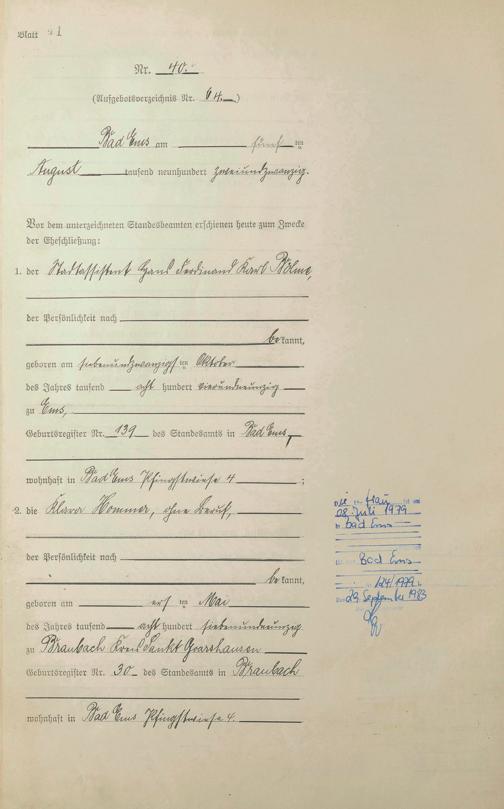 Blatt 41
Nr. 40.
(Aufgebotsverzeichnis Nr. 64.)
Bad Ems am fünften
August tausend neunhundert zweiundzwanzig.
Vor dem unterzeichneten Standesbeamten erschienen heute zum Zwecke
der Eheschließung:
1. der Stadtassistent Hans Ferdinand Karl
der Persönlichkeit nach
bekannt,
geboren am siebenundzwanzigsten Oktober
des Jahres tausend acht hundert vierundneunzig
zu Ems,
Geburtsregister Nr. 139 des Standesamts in Bad Ems,
wohnhaft in Bad Ems Pfingstwiese 4 ;
2. die Klara Hommer, ohne Beruf,
der Persönlichkeit nach
bekannt,
geboren am ersten Mai
des Jahres tausend acht hundert siebenundneunzig
zu Braubach Kreis Sankt Goarshausen
Geburtsregister Nr. 30 des Standesamts in Braubach
wohnhaft in Bad Ems Pfingstwiese 4.
28. Juli 1979
in Bad Ems
Bad Ems
124/1979
29. September 1983